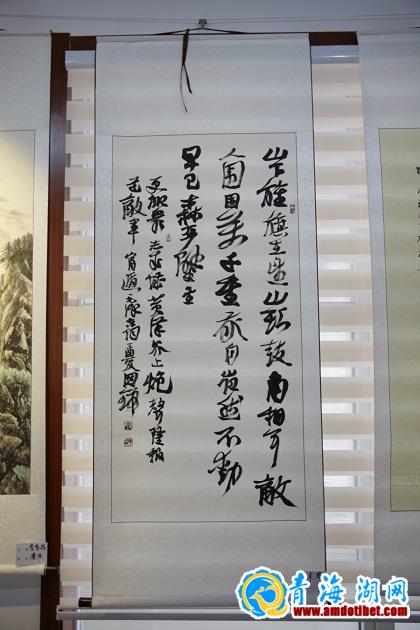 山下旌旗在望山头鼓角相闻敌
军围困万千重我自岿然不动
早已森严壁垒
更加众志成城黄洋界上炮声隆报
道敌军宵遁
青海湖网
www.amdotibet.com